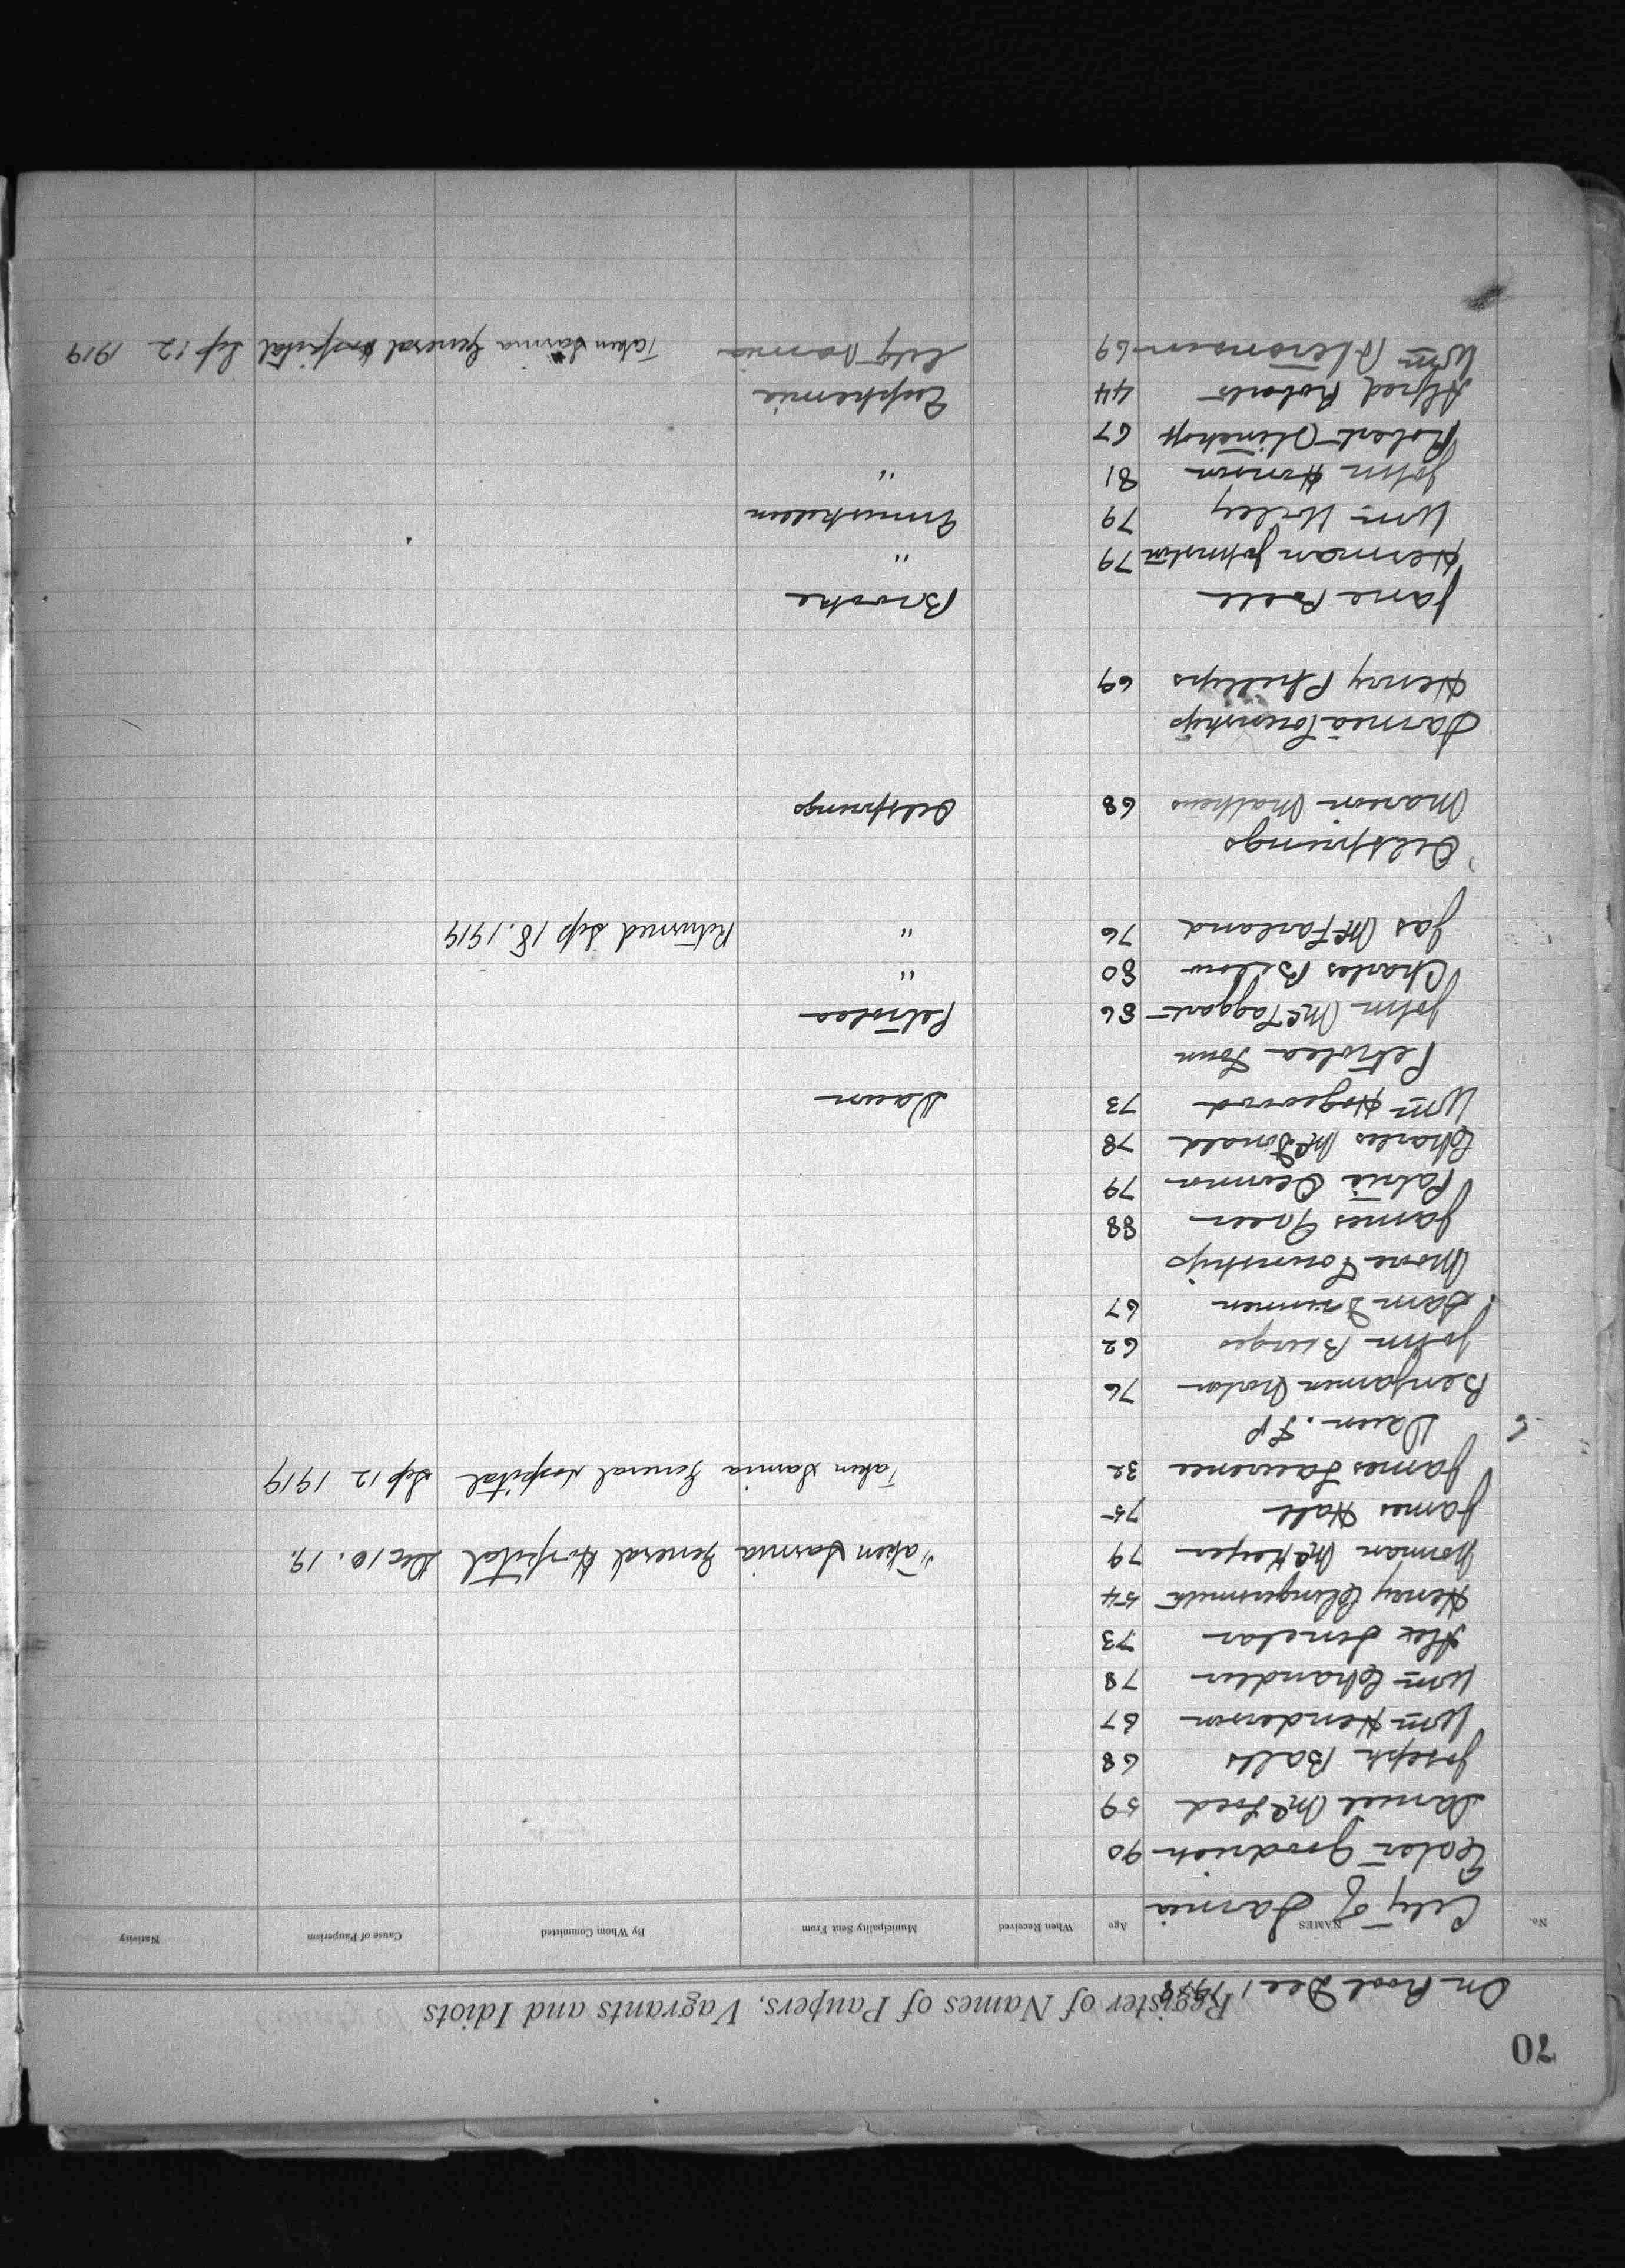 70
On Book Dec 1 1918
Register of Names of Paupers, Vagrants and Idiots
No. NAMES Age When Received Municipality Sent From By Whom Committed Cause of Pauperism Nativity
City of Sarnia
Ester Goodrich 90
Daniel McLeod 59
Joseph Balls 68
Wm Henderson 67
Wm Chandler 78
Alex Sinclar 73
Henry Clingersmith 54
Norman McKeyer 79 Taken Sarnia General Hospital Dec 10. 19.
James Hall 75
James Laurence 32 Taken Sarnia General Hospital Sep 12 1919
Dawn. T P
Benjamin 76
John Burges 62
Sam 67
Moore Township
James Greer 88
79
Charles McDonald 78
Wm Hagewood 73 Dawn
Petrolea Town
John McTaggart 86 Petrolea
Charles Below 80 "
Jas McFarland 76 " Returned Sep 18. 1919
Oilsprings
Marion Mathews 68 Oilsprings
Sarnia Township
Henry Phillips 69
Jane Bell Brooke
Herman Johnston 79 "
Wm Wiley 79 Inniskillen
John 81 "
Robert 67
Alfred Roberts 44 Euphemia
Wm 69 City Sarnia Taken Sarnia General Hospital Sep 12 1919